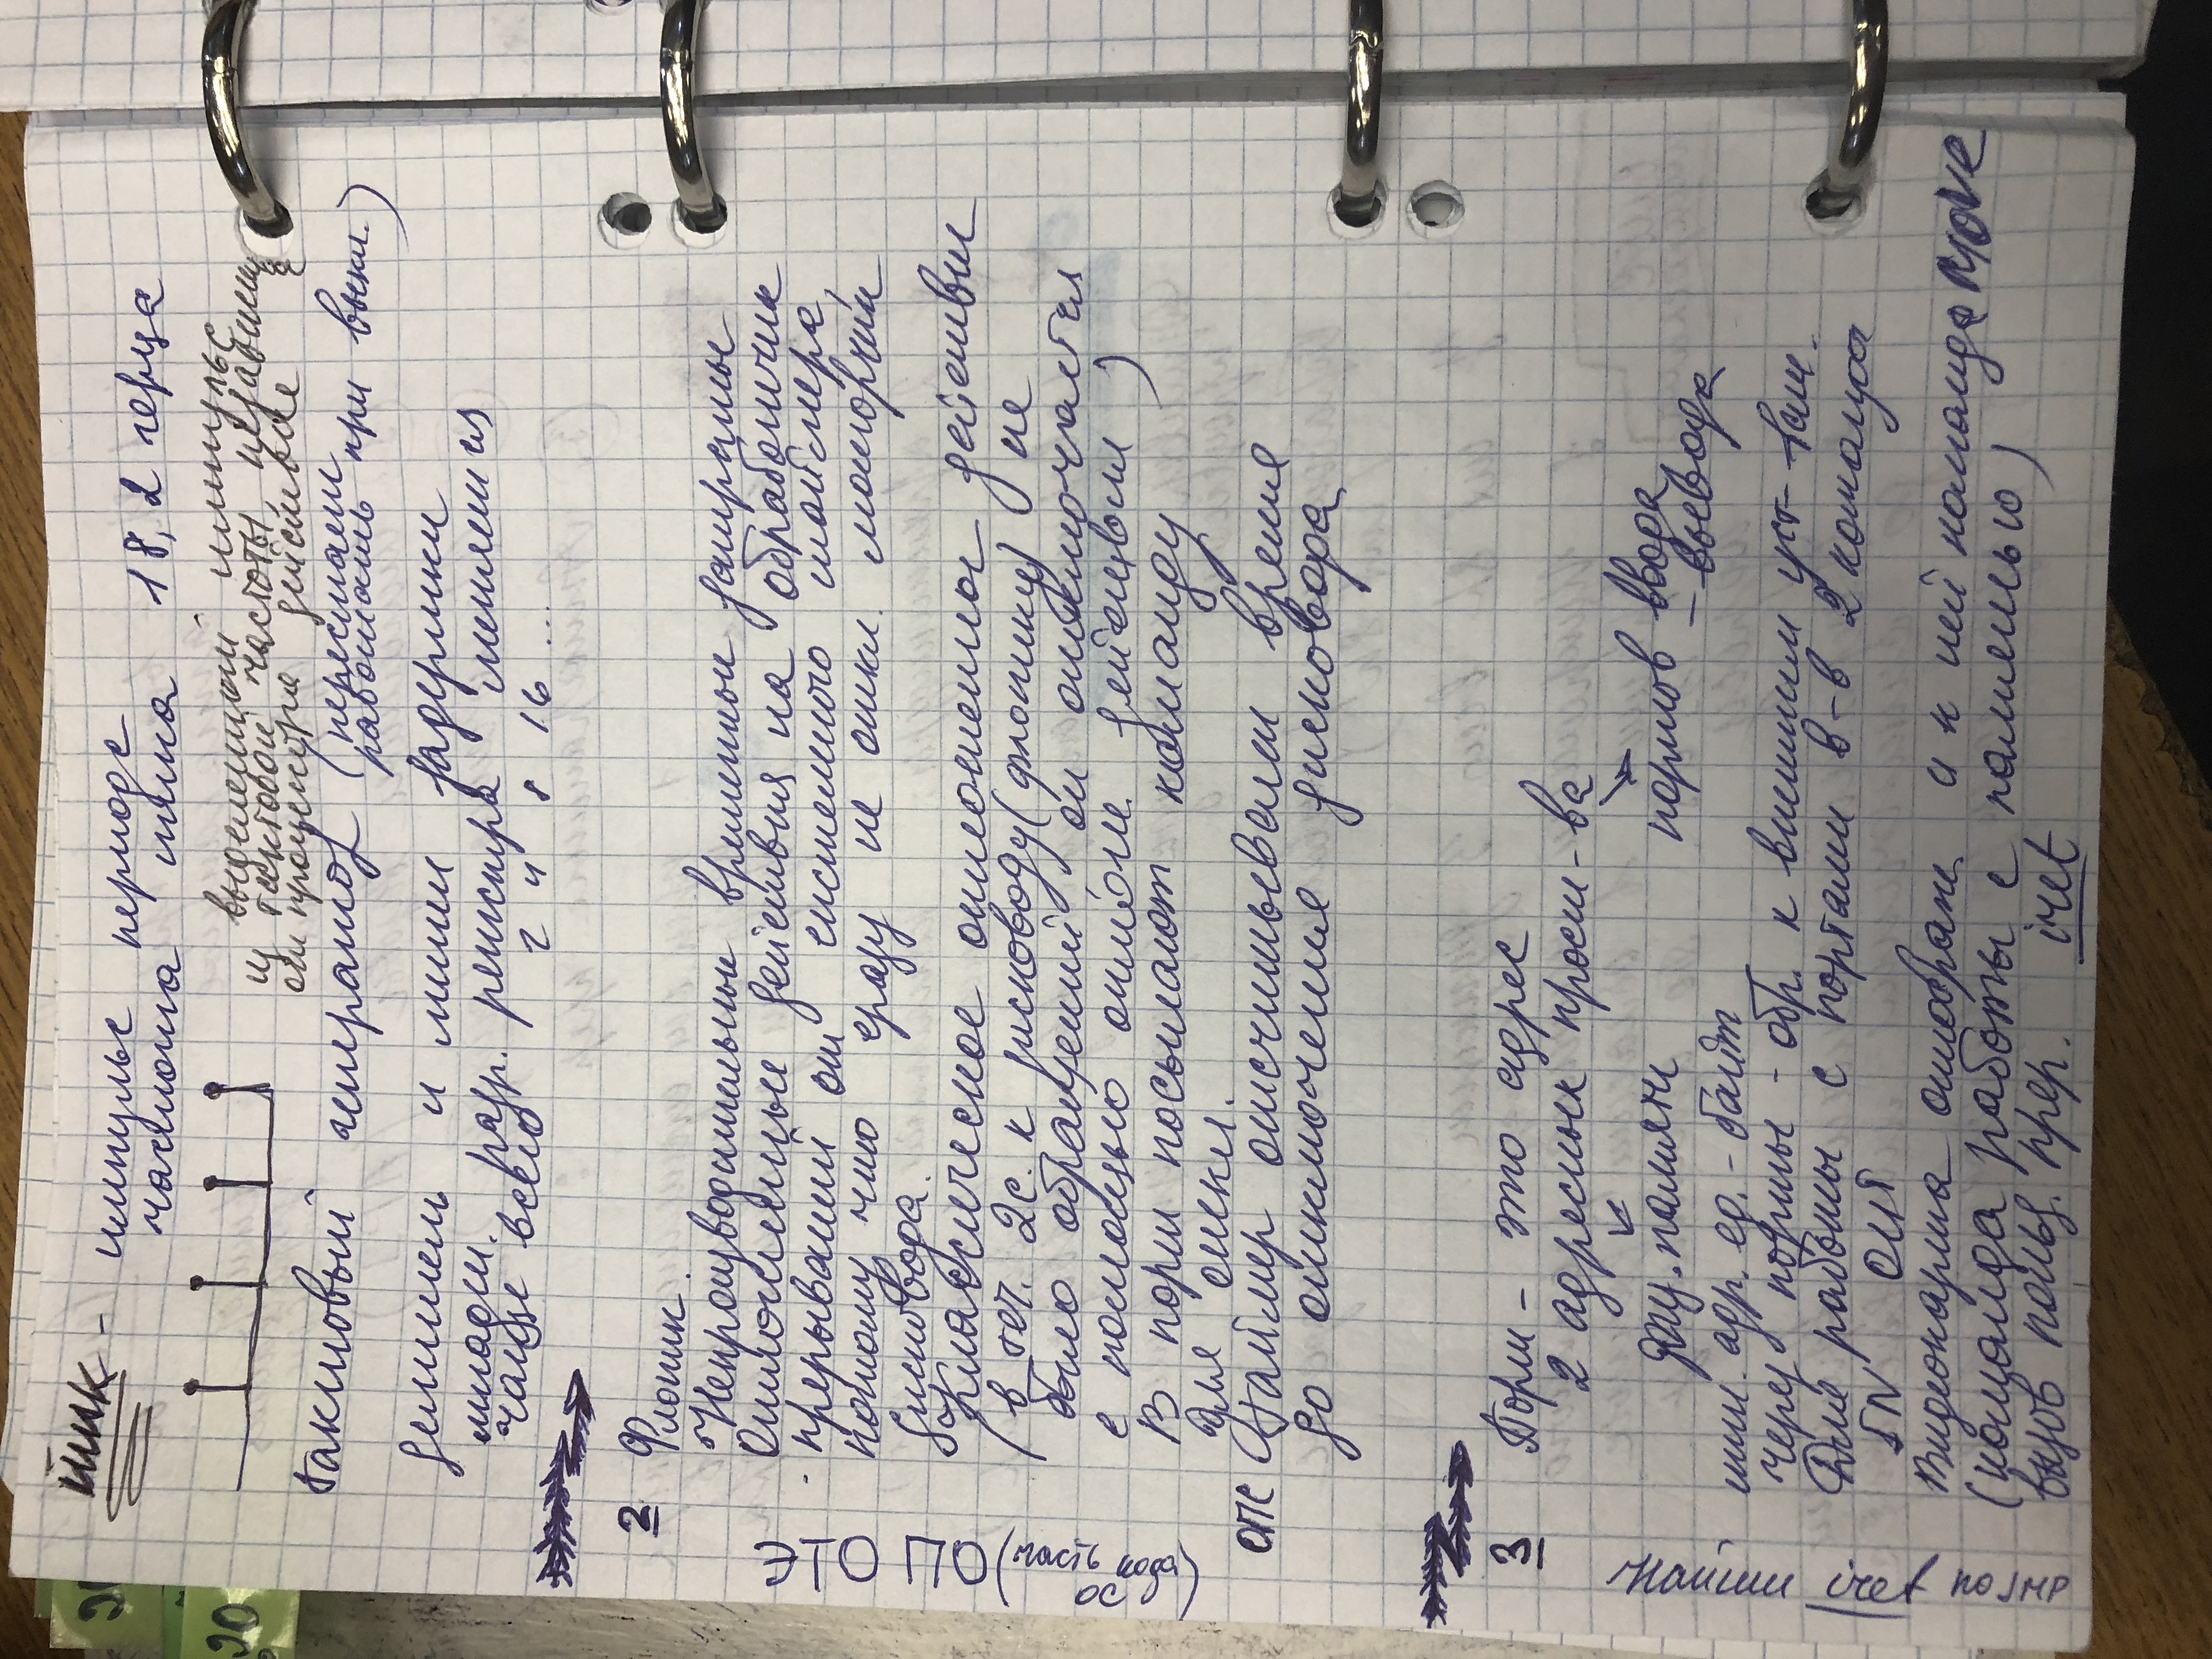 тик - импульс периода
частота тика 18,2 герца
выделенный импульс
из тактовой частоты, независим
от процессора действие
тактовый генератор (перестает
работать при выкл.)
делитель и линии задержки
младш. разр. регистра меняется
чаще всего 2 4 8 16 ...
2 Флопик.
Непроизводительные временные затраты
Отложенные действия на обработчик
прерываний от системного таймера,
потому что сразу не откл. моторчик
дисковода.
Классическое отложенное действие
(в теч. 2с. к дисководу (флопику) не
было обращений, он отключается
с помощью отлож. действия)
В порт посылают команду
для откл.
Таймер отсчитывает время
до отключения дисковода
ЭТО ПО (часть кода
ОС)
3 Порт - это адрес
2 адресных прост-ва
физ. памяти портов ввода
-вывода
мин. адр. ед. - байт
через порты - обр. к внешним уст-вам.
Для работы с портами в-в 2 команды
IN OUT
Видеокарта отображ. и к ней команда move
(команда работы с памятью)
вызов польз. прер. iret
Найти iret по